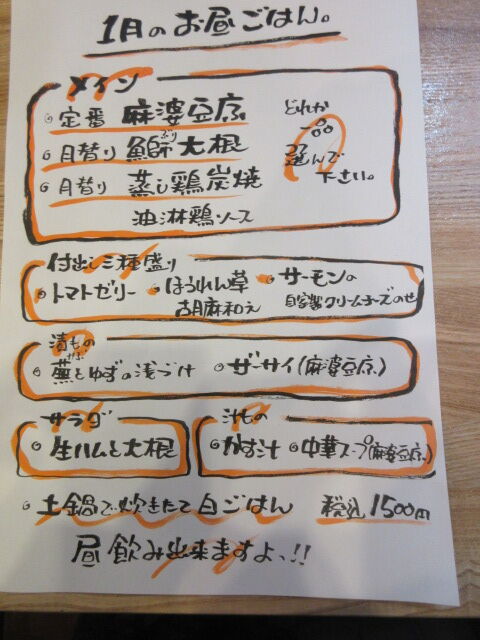 1月のお昼ごはん。
メイン
定番 麻婆豆腐
月替り 鰤大根
ぶり
月替り 蒸し鶏炭焼
油淋鶏ソース
どれか
一品
選んで
下さい。
付出し三種盛り
トマトゼリー
ほうれん草
胡麻和え
サーモンの
自家製クリームチーズのせ
漬もの
かぶ
蕪とゆずの浅づけ
ザーサイ(麻婆豆腐)
サラダ
生ハムと大根
汁もの
かす汁 中華スープ(麻婆豆腐)
土鍋で炊きたて白ごはん 税込1500円
昼飲み出来ますよっ!!